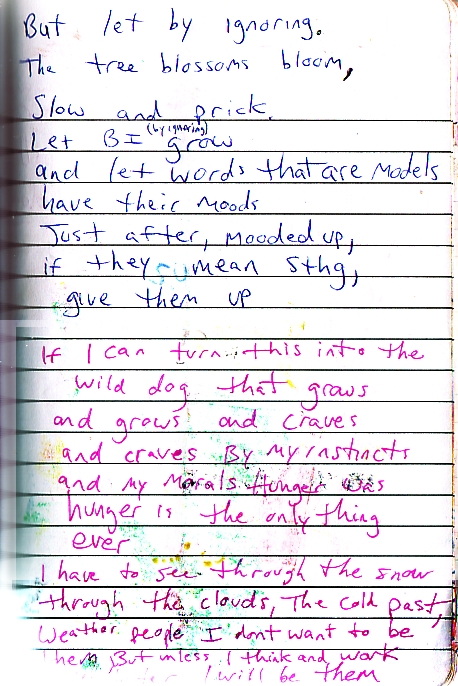 But let by ignoring.
The tree blossoms bloom,
Slow and prick.
(by ignoring)
Let BI grow
and let words that are models
have their moods
Just after, mooded up,
if they mean sthg,
give them up
If I can turn this into the
wild dog that grows
and grows and craves
and craves By my instincts
and my Morals Hunger was
hunger is the only thing
ever
I have to see through the snow
through the clouds, The cold past,
Weather people I dont want to be
Them, But unless I think and work
I will be them